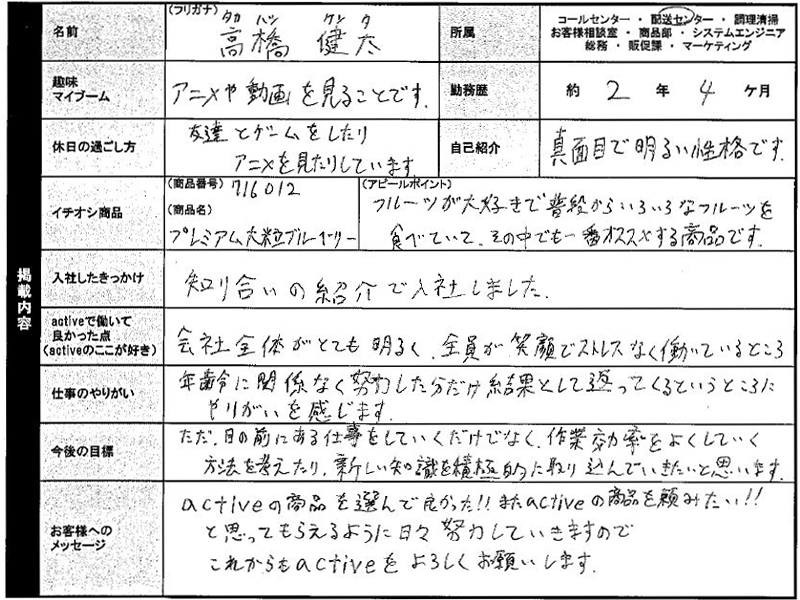 掲載内容
名前
(フリガナ)
タカハシ ケンタ
高橋 健太
所属
コールセンター ・ 配送センター ・ 調理清掃
お客様相談室 ・ 商品部 ・ システムエンジニア
総務 ・ 販促課 ・ マーケティング
趣味
マイブーム
アニメや動画を見ることです.
勤務歴
約 2 年 4 ケ月
休日の過ごし方
友達とゲームをしたり
アニメを見たりしています
自己紹介
真面目で明るい性格です.
イチオシ商品
(商品番号) 716012
(商品名)
プレミアム大粒ブルーベリー
(アピールポイント)
フルーツが大好きで普段からいろいろなフルーツを
食べていて、その中でも一番オススメする商品です.
入社したきっかけ
知り合いの紹介で入社しました.
activeで働いて
良かった点
(activeのここが好き)
会社全体がとても明るく、全員が笑顔でストレスなく働いているところ
仕事のやりがい
年齢に関係なく努力した分だけ結果として返ってくるというところに
やりがいを感じます.
今後の目標
ただ、目の前にある仕事をしていくだけでなく、作業効率をよくしていく
方法を考えたり、新しい知識を積極的に取り込んでいきたいと思います.
お客様への
メッセージ
activeの商品を選んで良かった!! またactiveの商品を頼みたい!!
と思ってもらえるように日々努力していきますので
これからもactiveをよろしくお願いします.